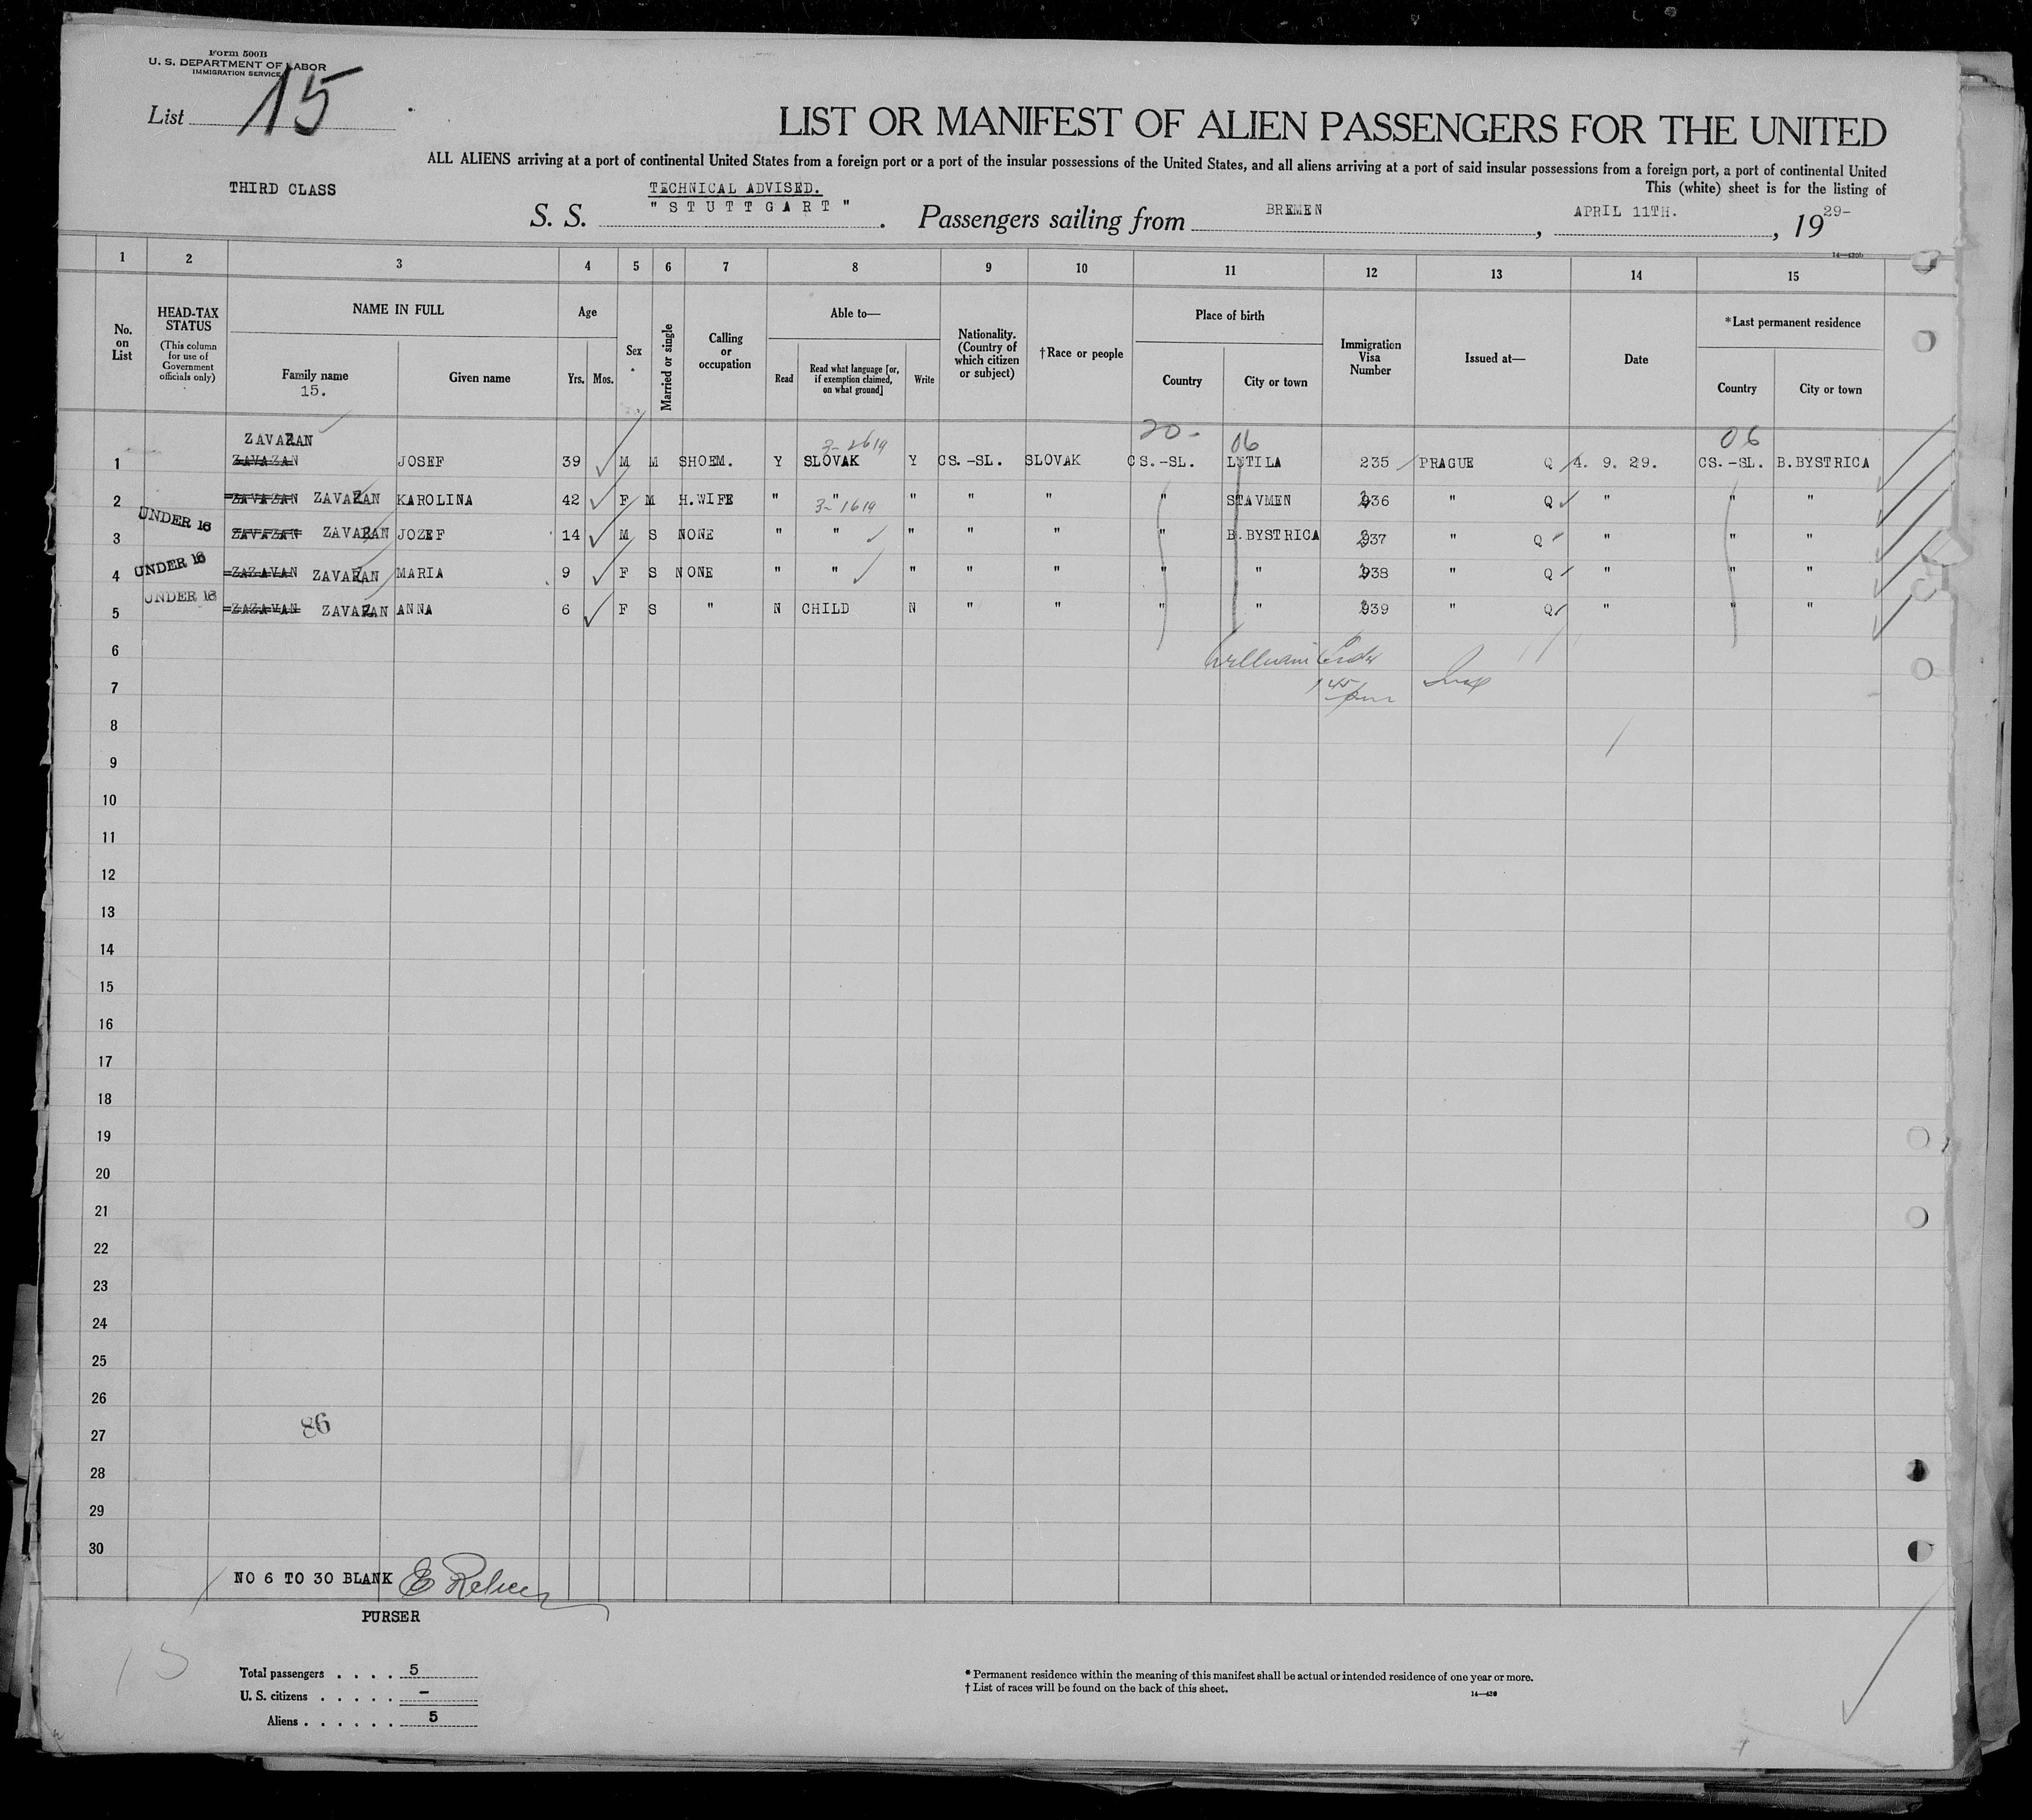 Form 500B
U. S. DEPARTMENT OF LABOR
IMMIGRATION SERVICE
List 15
LIST OR MANIFEST OF ALIEN PASSENGERS FOR THE UNITED
ALL ALIENS arriving at a port of continental United States from a foreign port or a port of the insular possessions of the United States, and all aliens arriving at a port of said insular possessions from a foreign port, a port of continental United
This (white) sheet is for the listing of
THIRD CLASS
TECHNICAL ADVISED.
S. S. "STUTTGART". Passengers sailing from BREMEN, APRIL 11TH., 1929-
14—430b
1 2 3 4 5 6 7 8 9 10 11 12 13 14 15
No. on List
HEAD-TAX STATUS
(This column for use of Government officials only)
NAME IN FULL
Family name
15.
Given name
Age
Yrs. Mos.
Sex
Married or single
Calling or occupation
Able to—
Read
Read what language [or, if exemption claimed, on what ground]
Write
Nationality. (Country of which citizen or subject)
†Race or people
Place of birth
Country
City or town
Immigration Visa Number
Issued at—
Date
*Last permanent residence
Country
City or town
20- 06 06
ZAVARAN
1 ZAVAZAN JOSEF 39 M M SHOEM. Y SLOVAK Y CS.-SL. SLOVAK CS.-SL. LUTILA 235 PRAGUE Q 4. 9. 29. CS.-SL. B.BYSTRICA
2 ZAVAZAN ZAVARAN KAROLINA 42 F M H.WIFE " " " " " " STAVMEN 236 " Q " " "
UNDER 16
3 ZAVAZAN ZAVARAN JOZEF 14 M S NONE " " " " " " B.BYSTRICA 237 " Q " " "
UNDER 16
4 ZAZAVAN ZAVARAN MARIA 9 F S NONE " " " " " " " 238 " Q " " "
UNDER 16
5 ZAZAVAN ZAVARAN ANNA 6 F S " N CHILD N " " " " 239 " Q " " "
6
William
7
8
9
10
11
12
13
14
15
16
17
18
19
20
21
22
23
24
25
26
86
27
28
29
30
NO 6 TO 30 BLANK
PURSER
15
Total passengers . . . . 5
U. S. citizens . . . . . –
Aliens . . . . . . 5
* Permanent residence within the meaning of this manifest shall be actual or intended residence of one year or more.
† List of races will be found on the back of this sheet.
14—430